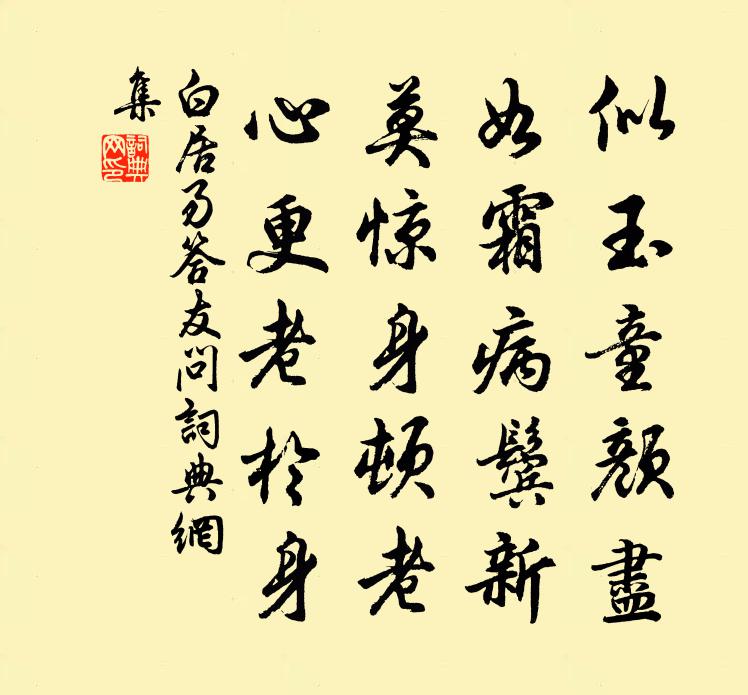 似玉童颜盡
如霜病鬓新
莫惊身顿老
心更老於身
白居易答友問詞典網
集
詞典網印